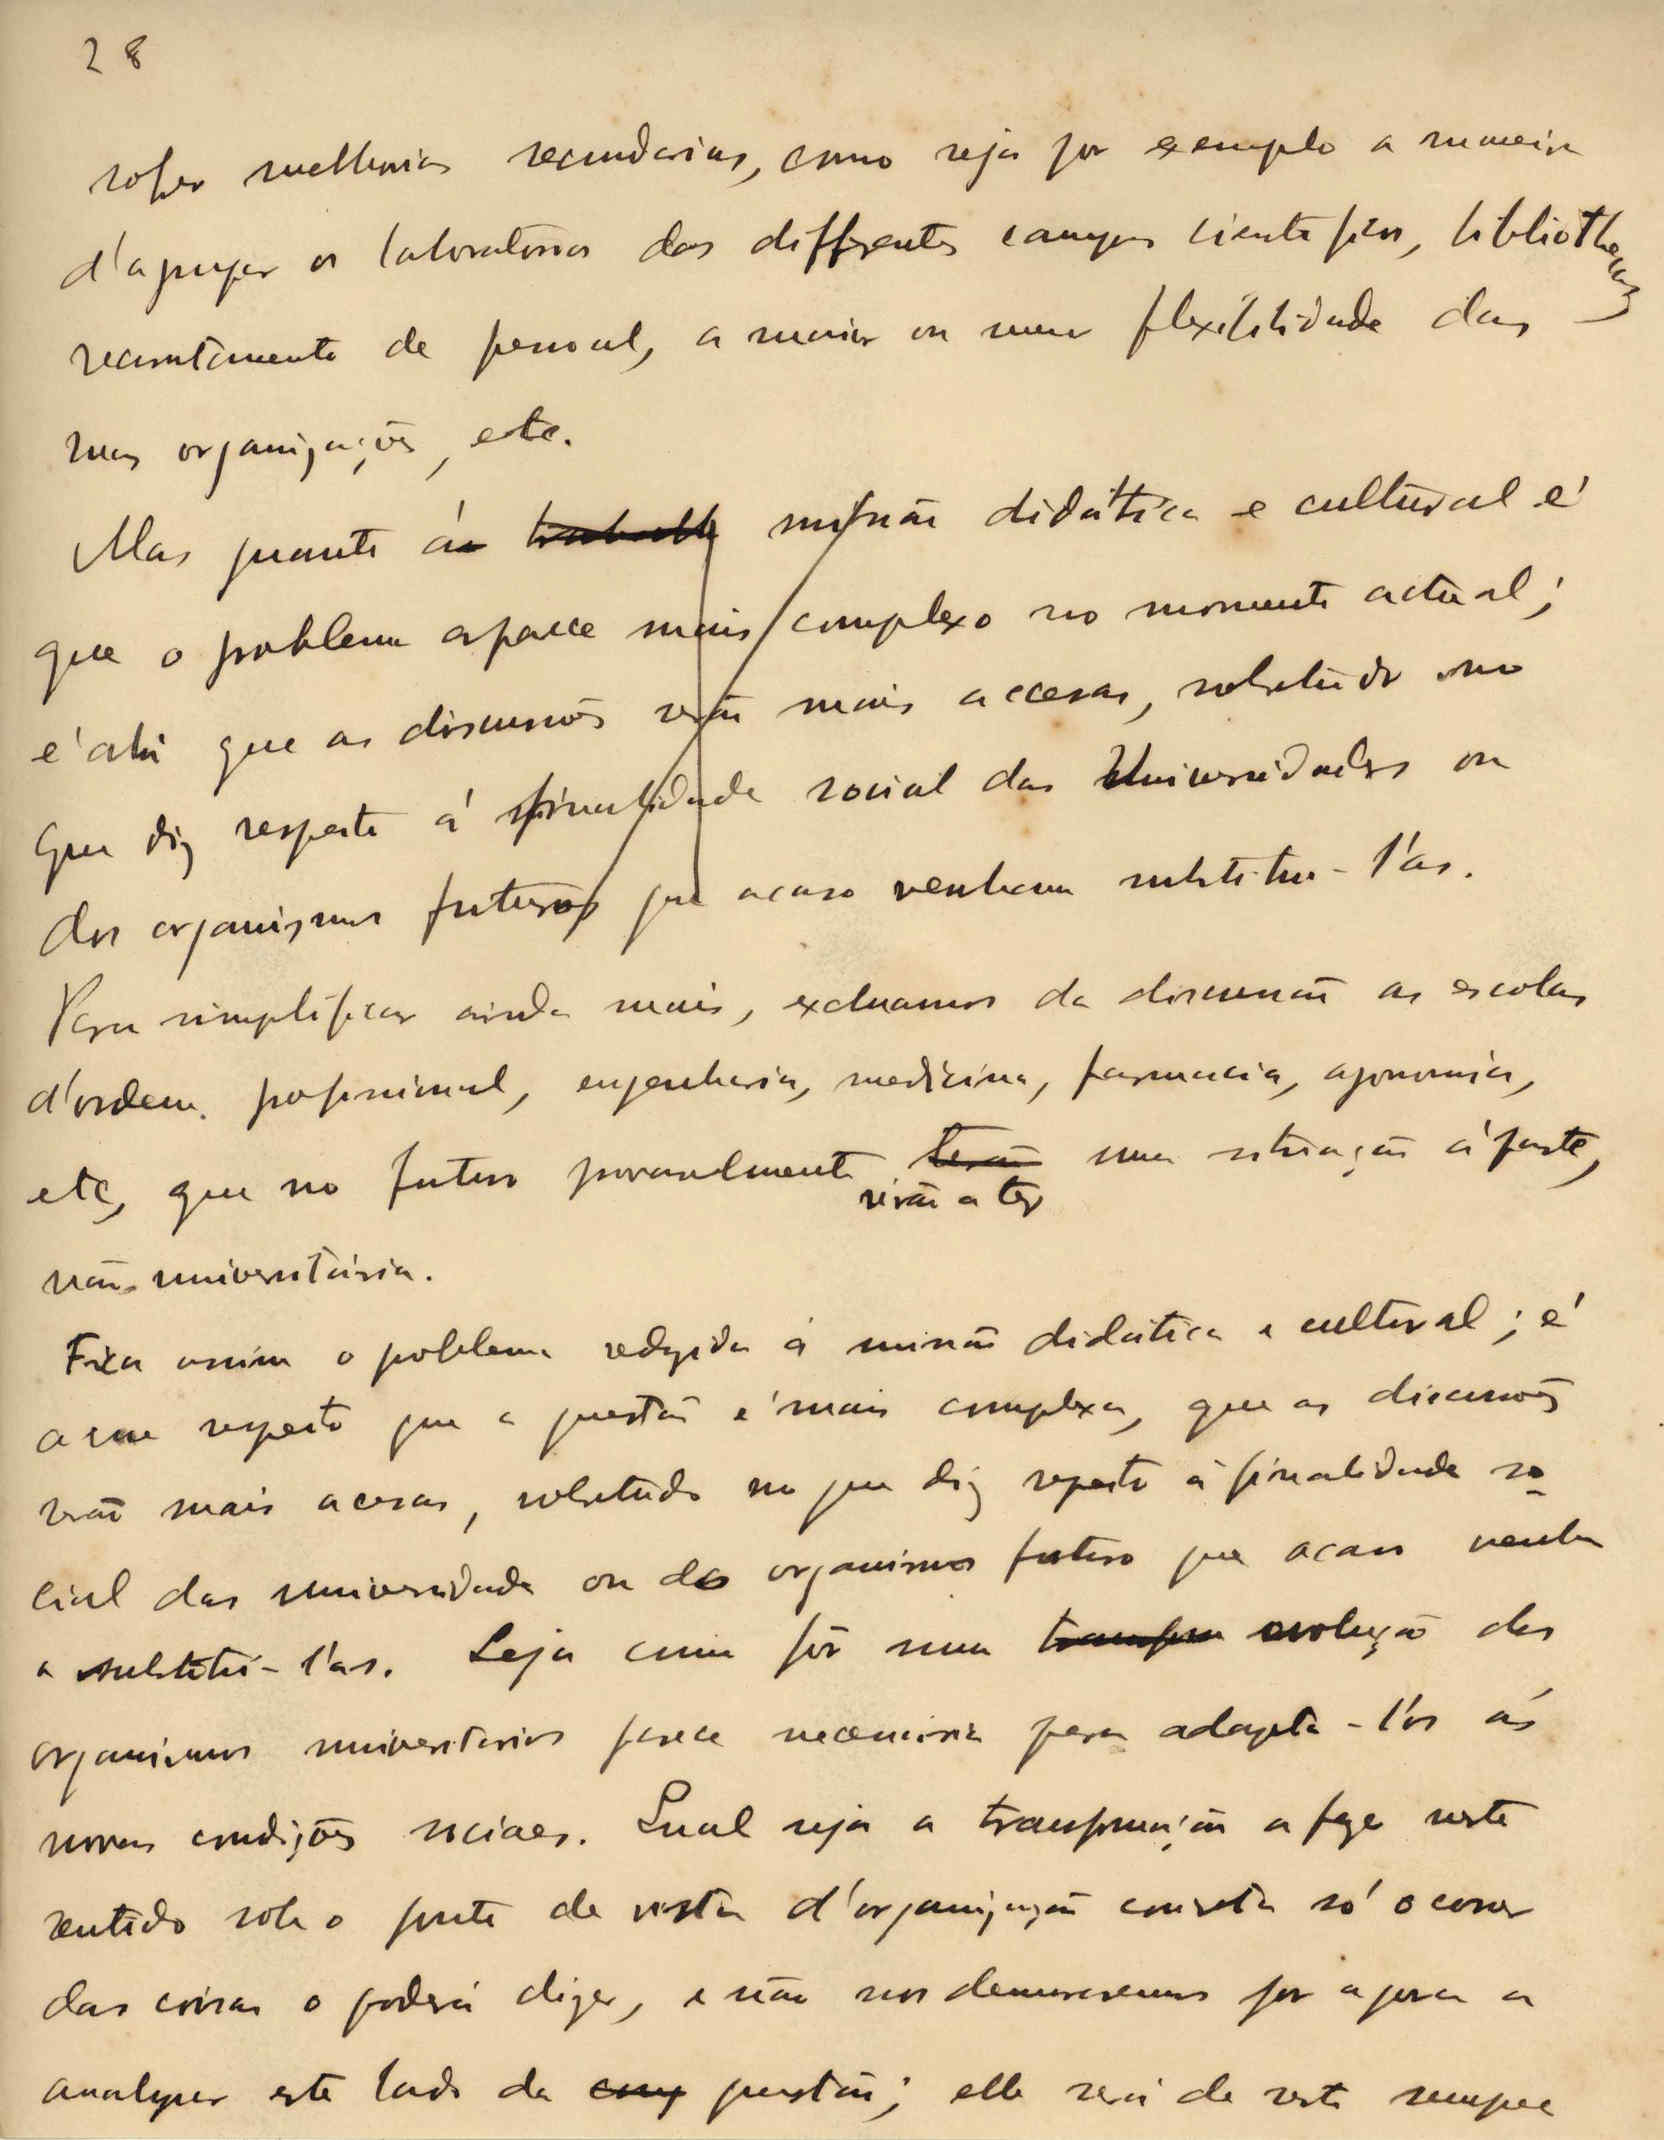 28
sofrer melhorias secundarias, como seja por exemplo a maneira
d'agrupar os laboratorios dos differentes campos scientificos, bibliothecas,
recrutamento de pessoal, a maior ou menor flexibilidade das
suas organizações, etc.
Mas quanto á missão didática e cultural é
que o problema aparece mais complexo no momento actual;
é ahi que as discussões serão mais accesas, sobretudo no
que diz respeito á finalidade social das Universidades ou
dos organismos futuros que acaso venham substitui-l'as.
Para simplificar ainda mais, excluamos da discussão as escolas
d'ordem profissional, engenharia, medicina, farmacia, agronomia,
etc, que no futuro provavelmente terão uma situação á parte,
virão a ter
não universitária.
Fica assim o problema á missão didática e cultural; é
a esse respeito que a questão é mais complexa, que as discussões
serão mais acesas, sobretudo no que diz respeito á finalidade so-
cial das universidade ou do organismo futuro que acaso venha
a substitui-l'as. Seja como fôr uma evolução dos
organismos universitarios parece necessária para adapta-l'os ás
novas condições sociaes. Qual seja a transformação a fazer neste
sentido sob o ponto de vista d'organização concreta só o correr
das coisas o poderá dizer, e não nos demoraremos por agora a
analyser este lado da questão; elle será de resto sempre